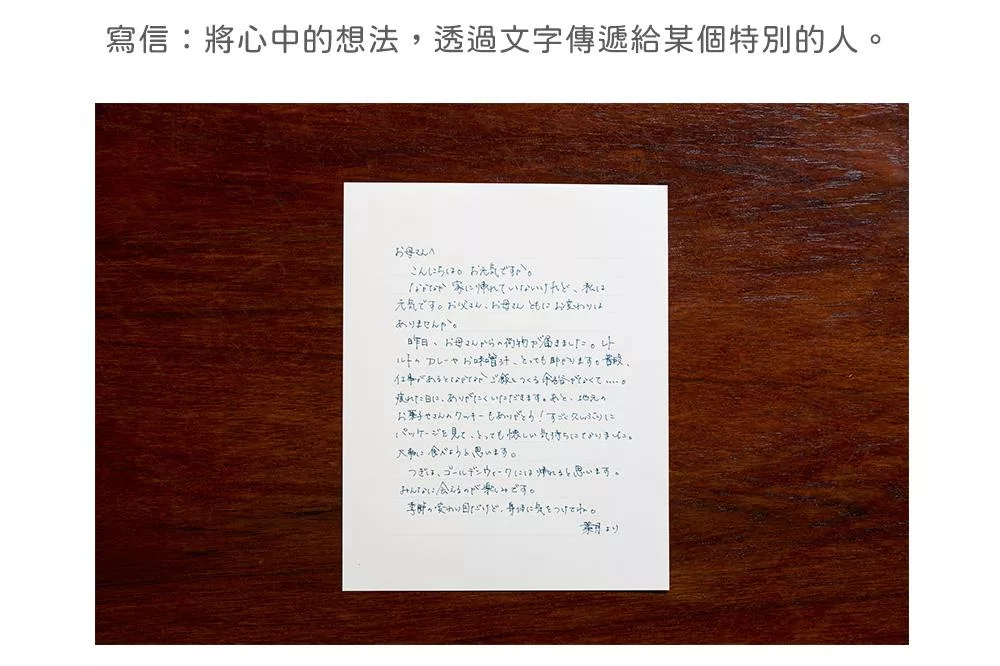 寫信：將心中的想法，透過文字傳遞給某個特別的人。
お母さんへ
こんにちは。お元気ですか。
なかなか家に帰れていないけれど、私は
元気です。お父さん、お母さんともにお変わりは
ありませんか。
昨日、お母さんからの荷物が届きました。レト
ルトのカレーやお味噌汁、とっても助かります。普段、
仕事があるとなかなかご飯をつくる余裕がなくて....。
疲れた日に、ありがたくいただきます。あと、地元の
お菓子やさんのクッキーもありがとう！すごく久しぶりに
パッケージを見て、とっても懐しい気持ちになりました。
大事に食べようと思います。
つぎは、ゴールデンウィークには帰れると思います。
みんなに会えるのが楽しみです。
季節の変わり目だけど、身体に気をつけてね。
葉月より